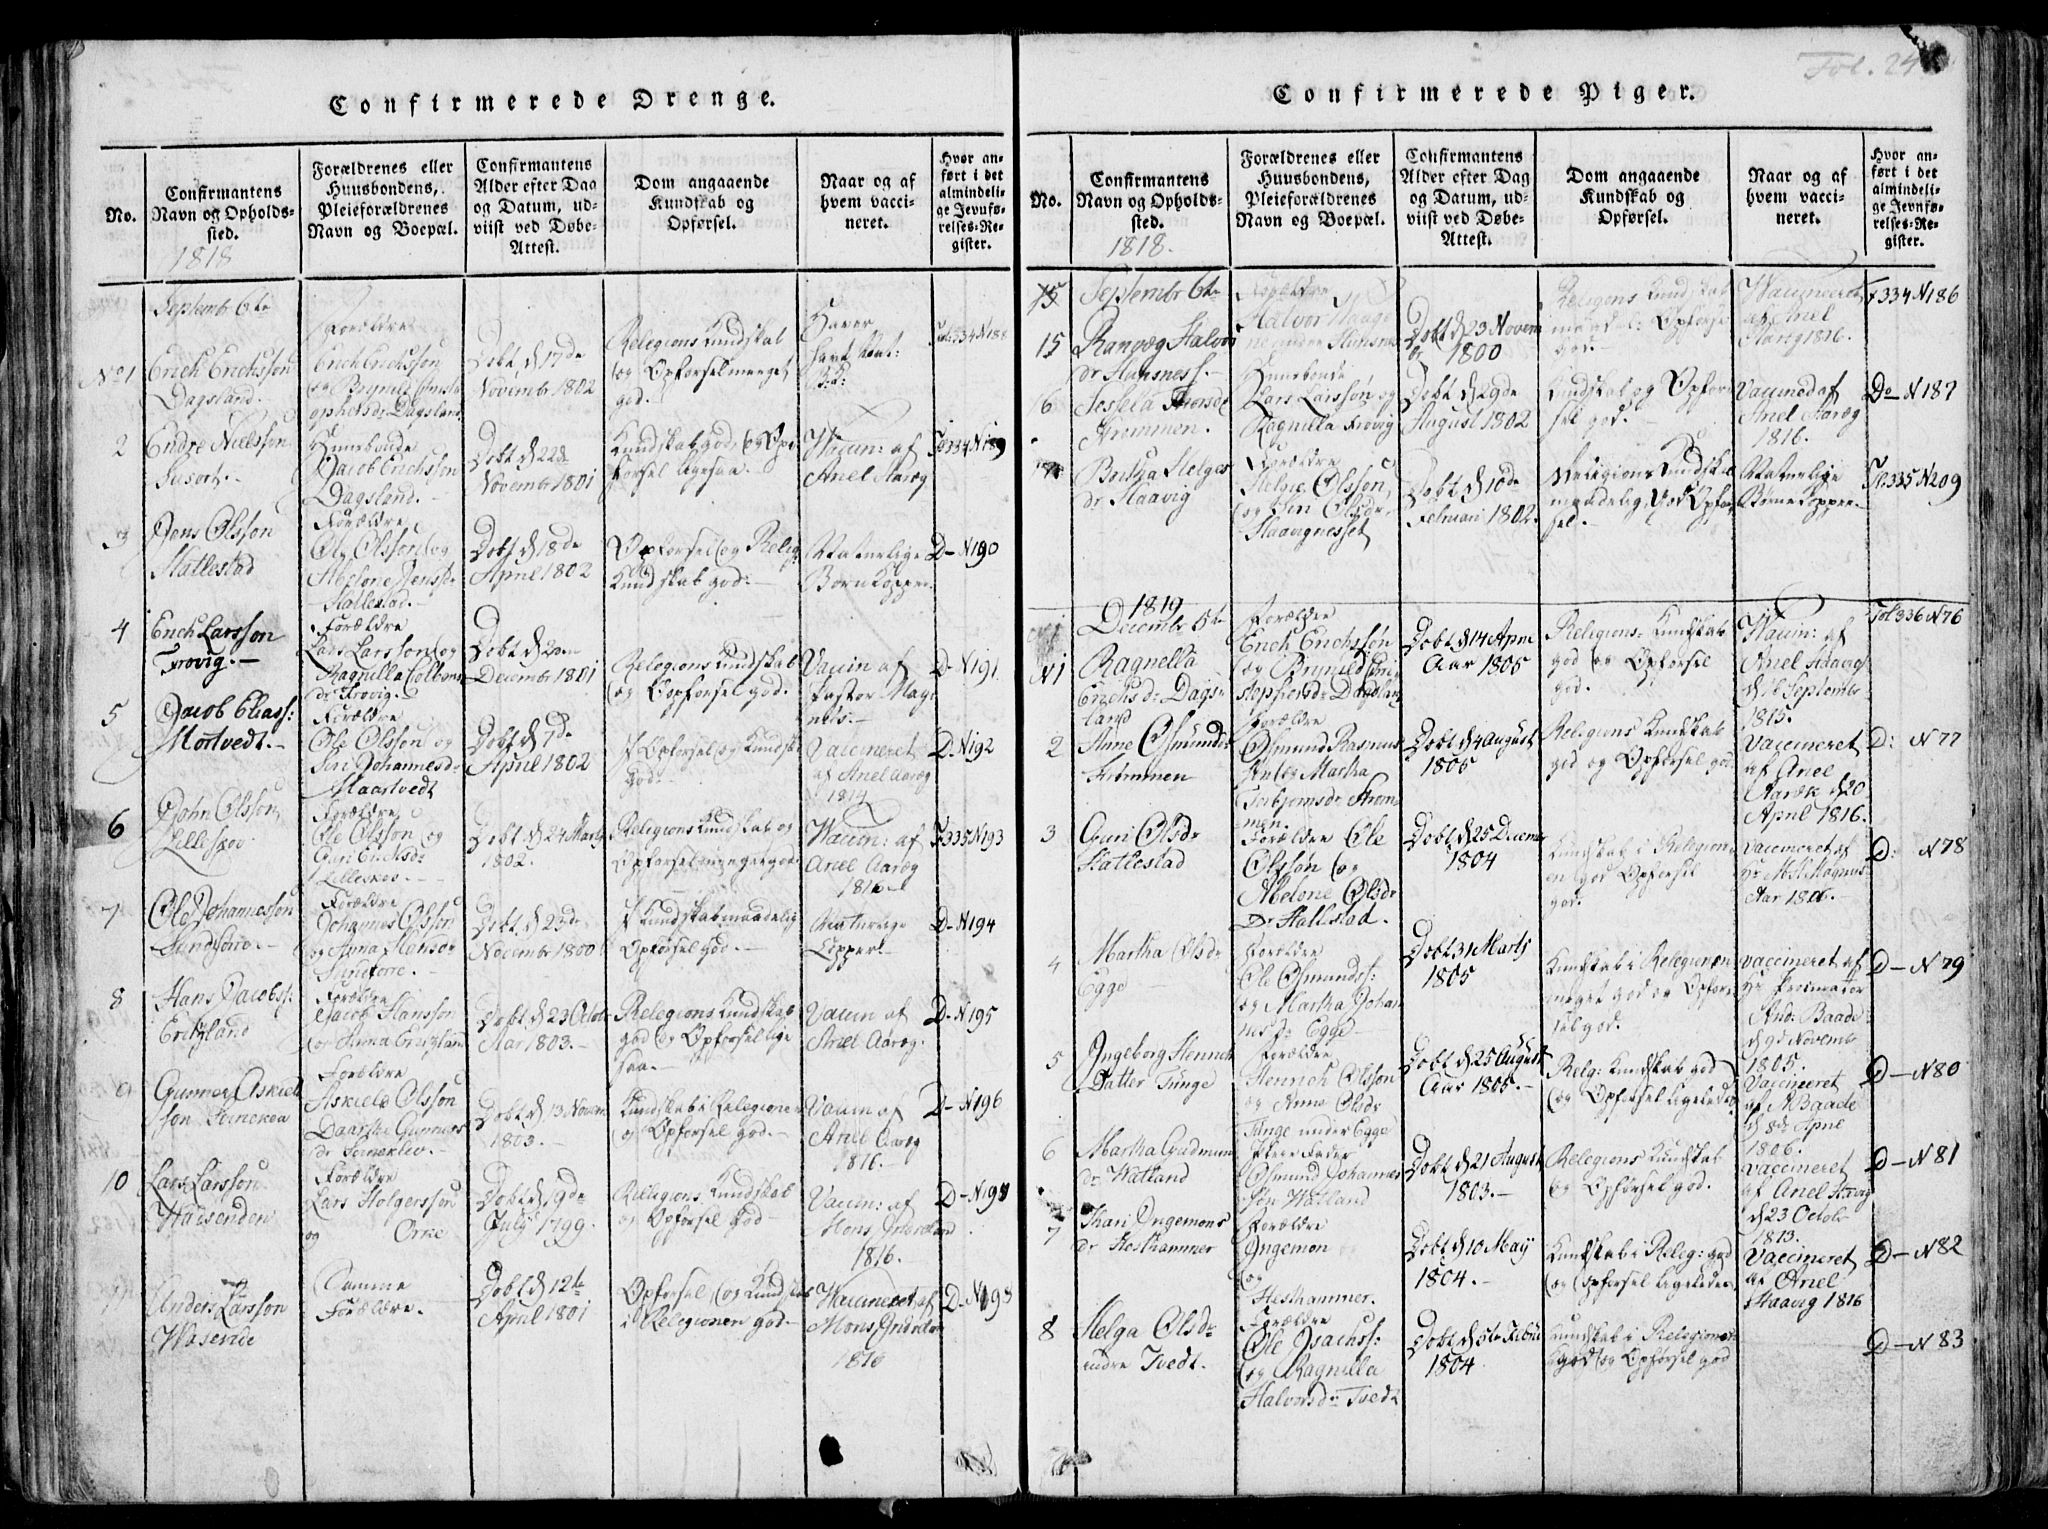 Fol. 24
Confirmerede Drenge.
No.
Confirmantens
Navn og Opholds-
sted.
1818
Forældrenes eller
Huusbondens,
Pleieforældrenes
Navn og Boepæl.
Confirmantens
Alder efter Dag
og Datum, ud-
viist ved Døbe-
Attest.
Dom angaaende
Kundskab og
Opførsel.
Naar og af
hvem vacci-
neret.
Hvor an-
ført i det
almindeli-
ge Jevnfø-
relses-Re-
gister.
Septembr 6te
No 1
Erich Erichssøn
Dagsland.
Forældre
Erich Erichssøn
og Brynild
Dagsland
Døbt d 17de
Novembr 1802
Religions Kundskab
og Opførsel meeget
god.
Haver
havt
334 N188
2
Endre Nielssøn
Susort.
Huusbonde
Jacob Erichssøn
Dagsland.
Døbt d 22d
Novembr 1801
Kundskab god, og Op-
førsel ligesaa.
Waccin: af
Anel Aaræg
334 N189
3
Jens Olssøn
Hallestad
Forældre
Ole Olssøn og
Abelone Jensdr
Hallestad.
Døbt d 18de
April 1802
Opførsel og Relig:
Kundskab god:
Naturlige
Børn Kopper
D— N190
4
Erich Larssøn
Frovig.—
Forældre
Lars Larssøn og
Ragnilla Colbens
dr Frovig.
Døbt d 20
Decembr 1801
Religions Kundskab
og Opførsel god.
Vaccin af
Pastor Mag-
nus.—
D— N191
5
Jacob Eliass:
Mortvedt.—
Forældre
Ole Olssøn og
Siri Johannesd
Maartvedt
Døbt d 7d
April 1802
Opførsel og Kundsk
god.
Vaccineret
af Anel Aaræg
1814
D— N192
6
John Olssøn,
Lilleskov
Forældre
Ole Olssøn og
Guri Erichsdr
Lilleskov.
Døbt d. 24 Marty
1802.
Religions Kundskab og
Opførsel meeget god
Waccin: af
Anel Aaræg
1816
335 N193
7
Ole Johannessøn
Forældre
Johannes Olssøn
og Anna
Døbt d 23de
Novembr 1800
Kundskab maadelig
Opførsel god.
Naturlige
Copper
D— N194
8
Hans Jacobss:
Erichsland
Forældre
Jacob Hanssøn
og Anna
Døbt d 23 Octobr
Aar 1803.—
Religions Kundskab
god og Opførsel lige
saa.—
Vaccin af
Anel Aaræg.
D— N195
9
Gunner Askield
søn
Forældre
Askield Olssøn
Gunners
dr
Døbt d. 13 Novem
1803.—
Kundskab i Religionen
og Opførsel god.—
Vaccin af
Anel Aaræg
1816.—
D— N196
10
Lars Larssøn
Waisenden
Forældre
Lars Holgerssøn
og Orke
Døbt d 19de
July 1799.
Religions Kundskab
og Opførsel god—
Vaccin: af
Mons
1816.
D— N197
Anders Larssøn
Wasende
Samme
Forældre.
Døbt d 12te
April 1801
Opførsel og Kundskab
i Religionen god—
Waccineret af
Mons
1816
D— N198
Confirmerede Piger.
No.
Confirmantens
Navn og Opholds-
sted.
1818.
Forældrenes eller
Huusbondens,
Pleieforældrenes
Navn og Boepæl.
Confirmantens
Alder efter Dag
og Datum, ud-
viist ved Døbe-
Attest.
Dom angaaende
Kundskab og
Opførsel.
Naar og af
hvem vacci-
neret.
Hvor an-
ført i det
almindeli-
ge Jevnfø-
relses-Re-
gister.
Septembr 6te
15
Rangvæg Halvor
dr
Forældre
Halvor
Døbt d 23 Novem
br 1800
Religions Kundskab
maadel: Opførsel
god.—
Waccineret
af Anel
Aaræg 1816.
F 334 N186
16
Strømmen.
Huusbonde
Lars Larssøn og
Ragnilla Frovig
Døbt d 29de
August 1802
Kundskab og Opfør
sel god.
Vaccined af
Anel Aaræg
1816.
Do N187
Bertha Helges
dr Haavig
Forældre
Helge Olssøn,
og Olsdr
Haavignesset
Døbt d 10de
Februari 1802.
Religions Kundskab
maadelig, God Opfør
sel.—
Naturlige
Børne Kopper.
335 N209
1819
Decembr 5te
N1
Ragnella
Erichsd: Dags-
land
Forældre
Erich Erichssøn
og Brynild
Døbt d 14 April
Aar 1805
Religions- Kundskab
god og Opførsel
god.
Waccin: af
Anel Haavig
d 16 Septembr
1815.
Fol 336 N76
2
Anne Osmunds
Strømmen
Forældre
Osmund Rasmus
Martha
Torbjørnsdr Strøm-
men.
Døbt d 4 August
1805
Religions Kundskab
god og Opførsel god
Vaccineret
af Anel
Aaræk d 20
April 1816.
D: N77
3
Guri Olsdr
Hatlestad
Forældre Ole
Olssøn og
Abelone Olsdr
Hallstad.
Døbt d 25 Decembr
1804
Kundskab i Religion-
en god Opførsel
god.
vaccineret af
Hr Magnus
Aar 1806.—
D: N78
4
Martha Olsdr
Egge
Forældre
Ole Osmundss:
og Martha Johan
Egge
Døbt 31 Marts
1805
Kundskab i Religionen
meget god og Opfør-
sel god.
vaccineret af
And: Baade
d 9d Novembr
1805.
D— N79
5
Ingeborg Henrich
Datter Tunge
Forældre
Henrich Olssøn
og Anne Olsdr
Tunge under Egge
Døbt d 25 August
Aar 1805.—
Relig: Kundskab god
og Opførsel ligeledes
Vaccineret
af A Baade
d 8de April
1806.
D— N80
6
Martha Gudmun
dr Watland
Osmund Johannes
søn Watland
Døbt d 21 August
1803.—
Religions Kundskab
og Opførsel god.
Vaccineret
af Anel Haavig
d 23 Octobr
1813.
D— N81
7
Kari Ingemons
dr Hesthammer
Forældre
Ingemon
og
Hesthammer.
Døbt d 10 May
1804.—
Kundskab i Relig: god
og Opførsel ligeledes
Vaccineret
af Anel
Haavig 1816
D— N82
8
Helga Olsdr
indre Tvedt.
Forældre
Ole Isachss:
og Ragnilla
Halvorsdr Tvedt
Døbt d 5te Febru
1804
Kundskab i Religionen
god og Opførsel god
D— N83